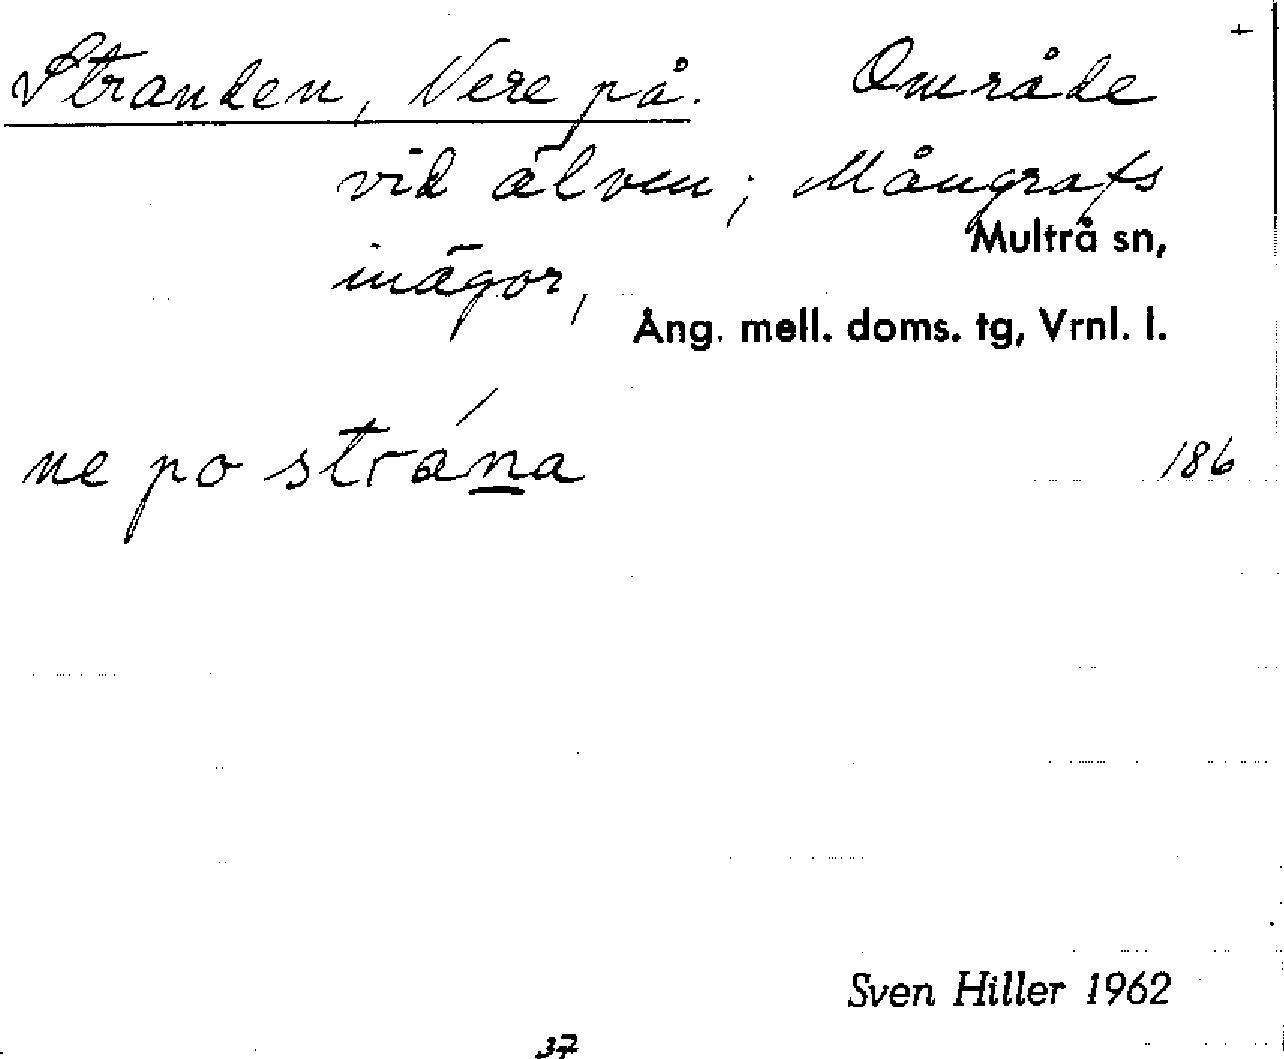 +
Stranden, Nere på. Område
vid älven; Mångrafs
Multrå sn,
inägor,
Ång. mell. doms. tg, Vrnl. l.
ne po strána
186
Sven Hiller 1962
37